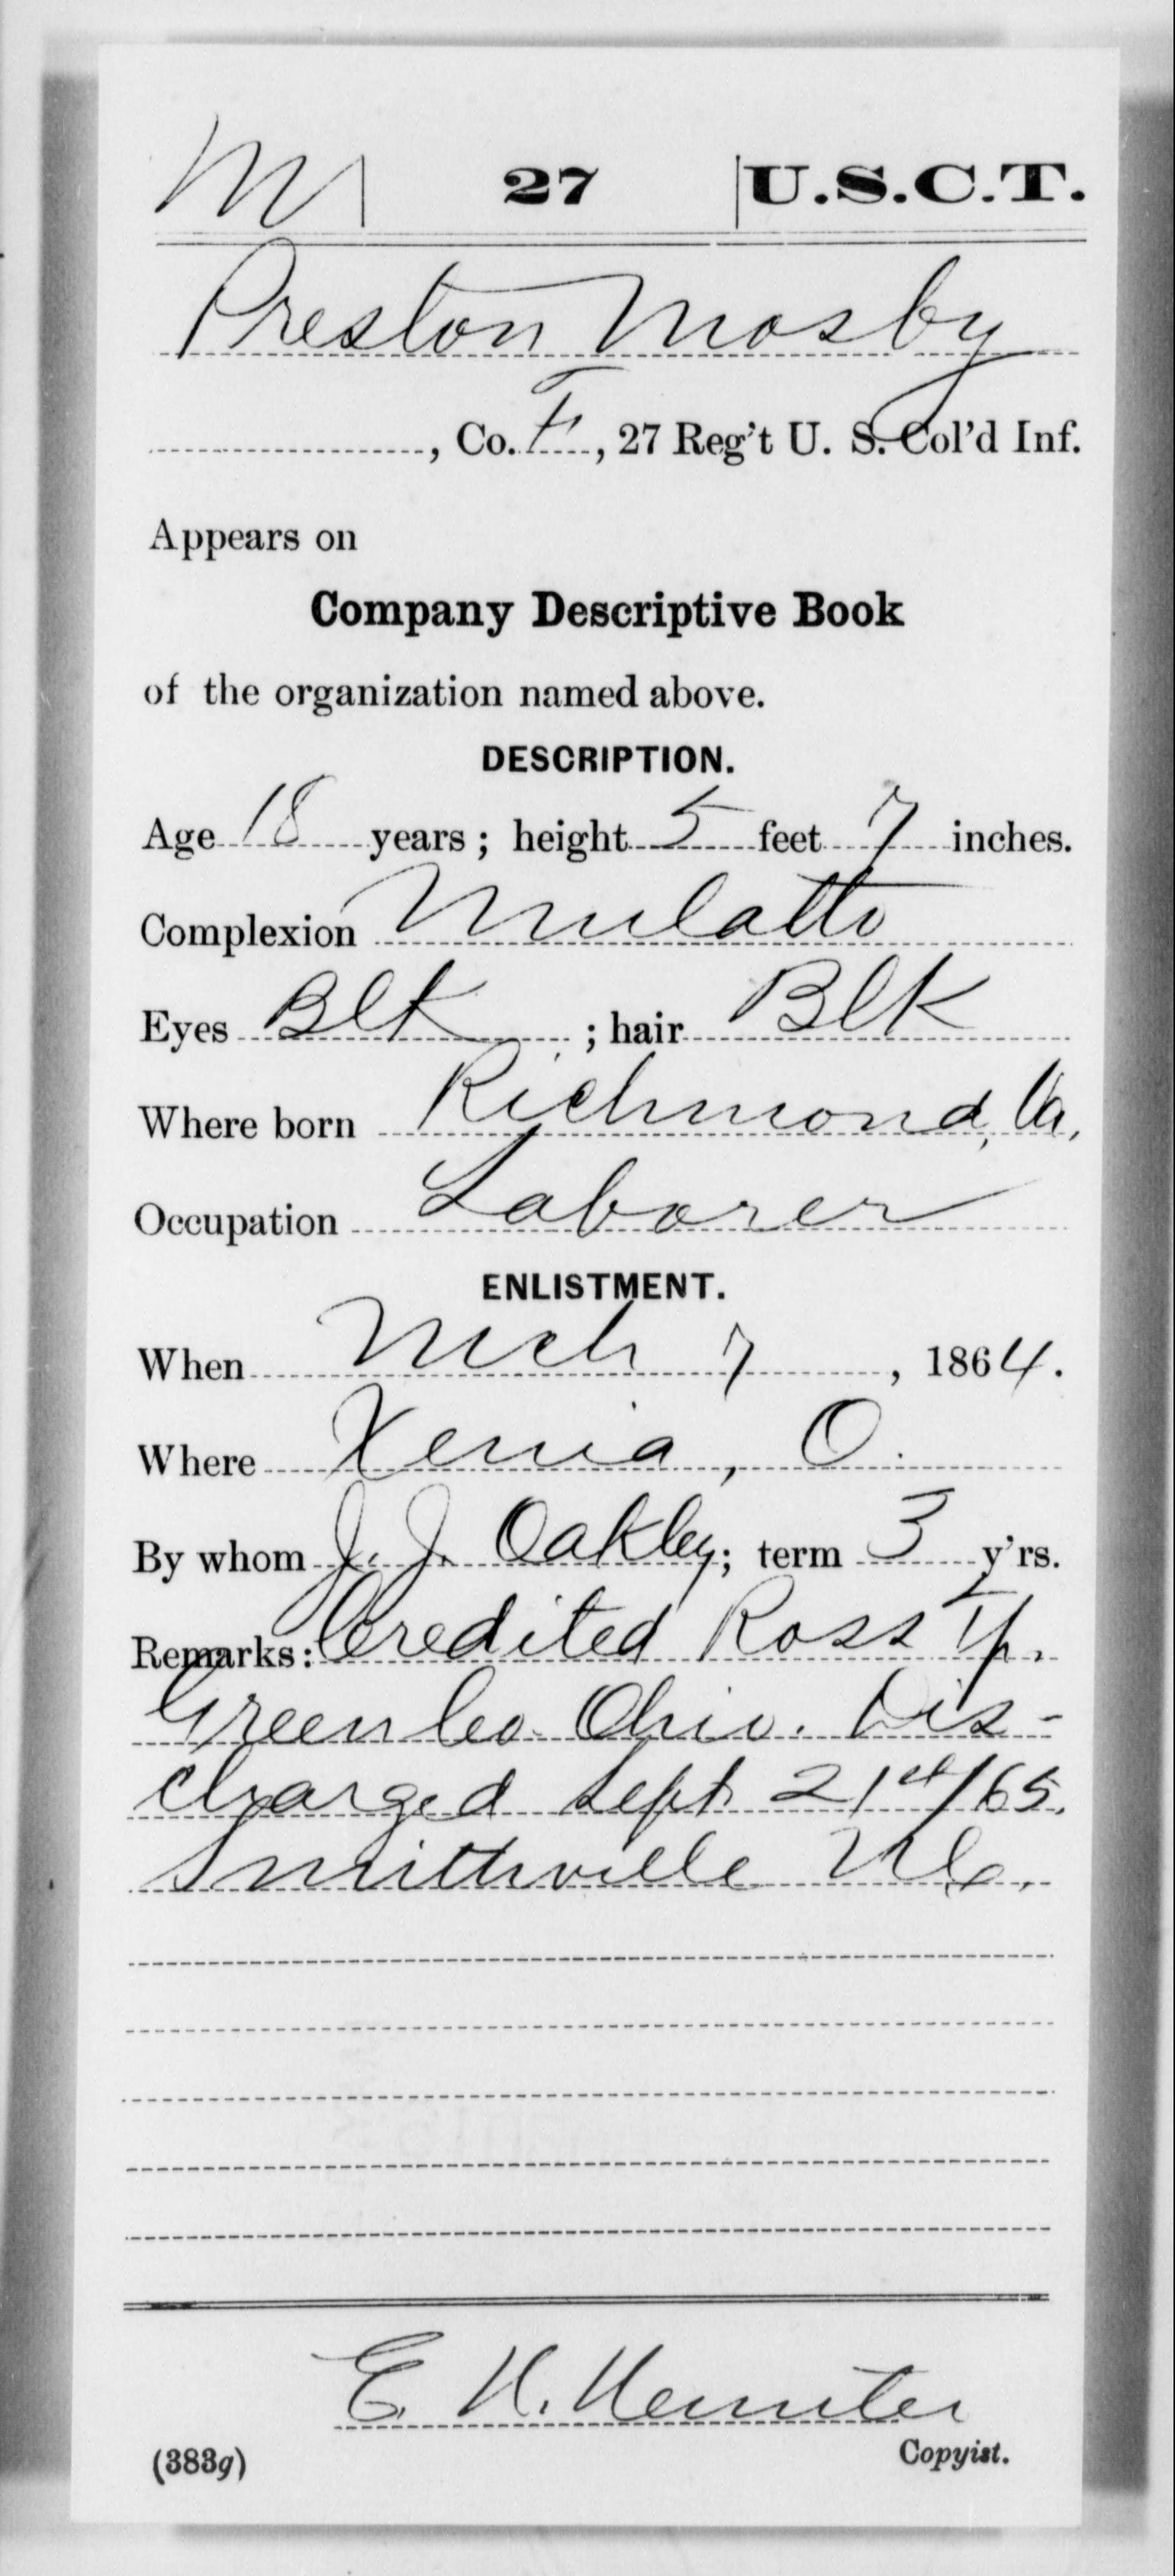 M | 27 | U.S.C.T.
Preston Mosby
, Co. F, 27 Reg't U. S. Col'd Inf.
Appears on
Company Descriptive Book
of the organization named above.
DESCRIPTION.
Age 18 years; height 5 feet 7 inches.
Complexion Mulatto
Eyes Blk; hair Blk
Where born Richmond, Va.
Occupation Laborer
ENLISTMENT.
When Mch 7, 1864.
Where Xenia, O.
By whom J. J. Oakley; term 3 y'rs.
Remarks: Credited Ross Tp.
Green Co. Ohio. Dis-
charged Sept. 21st/65.
Smithville N.C.
E. H.
(383g) Copyist.